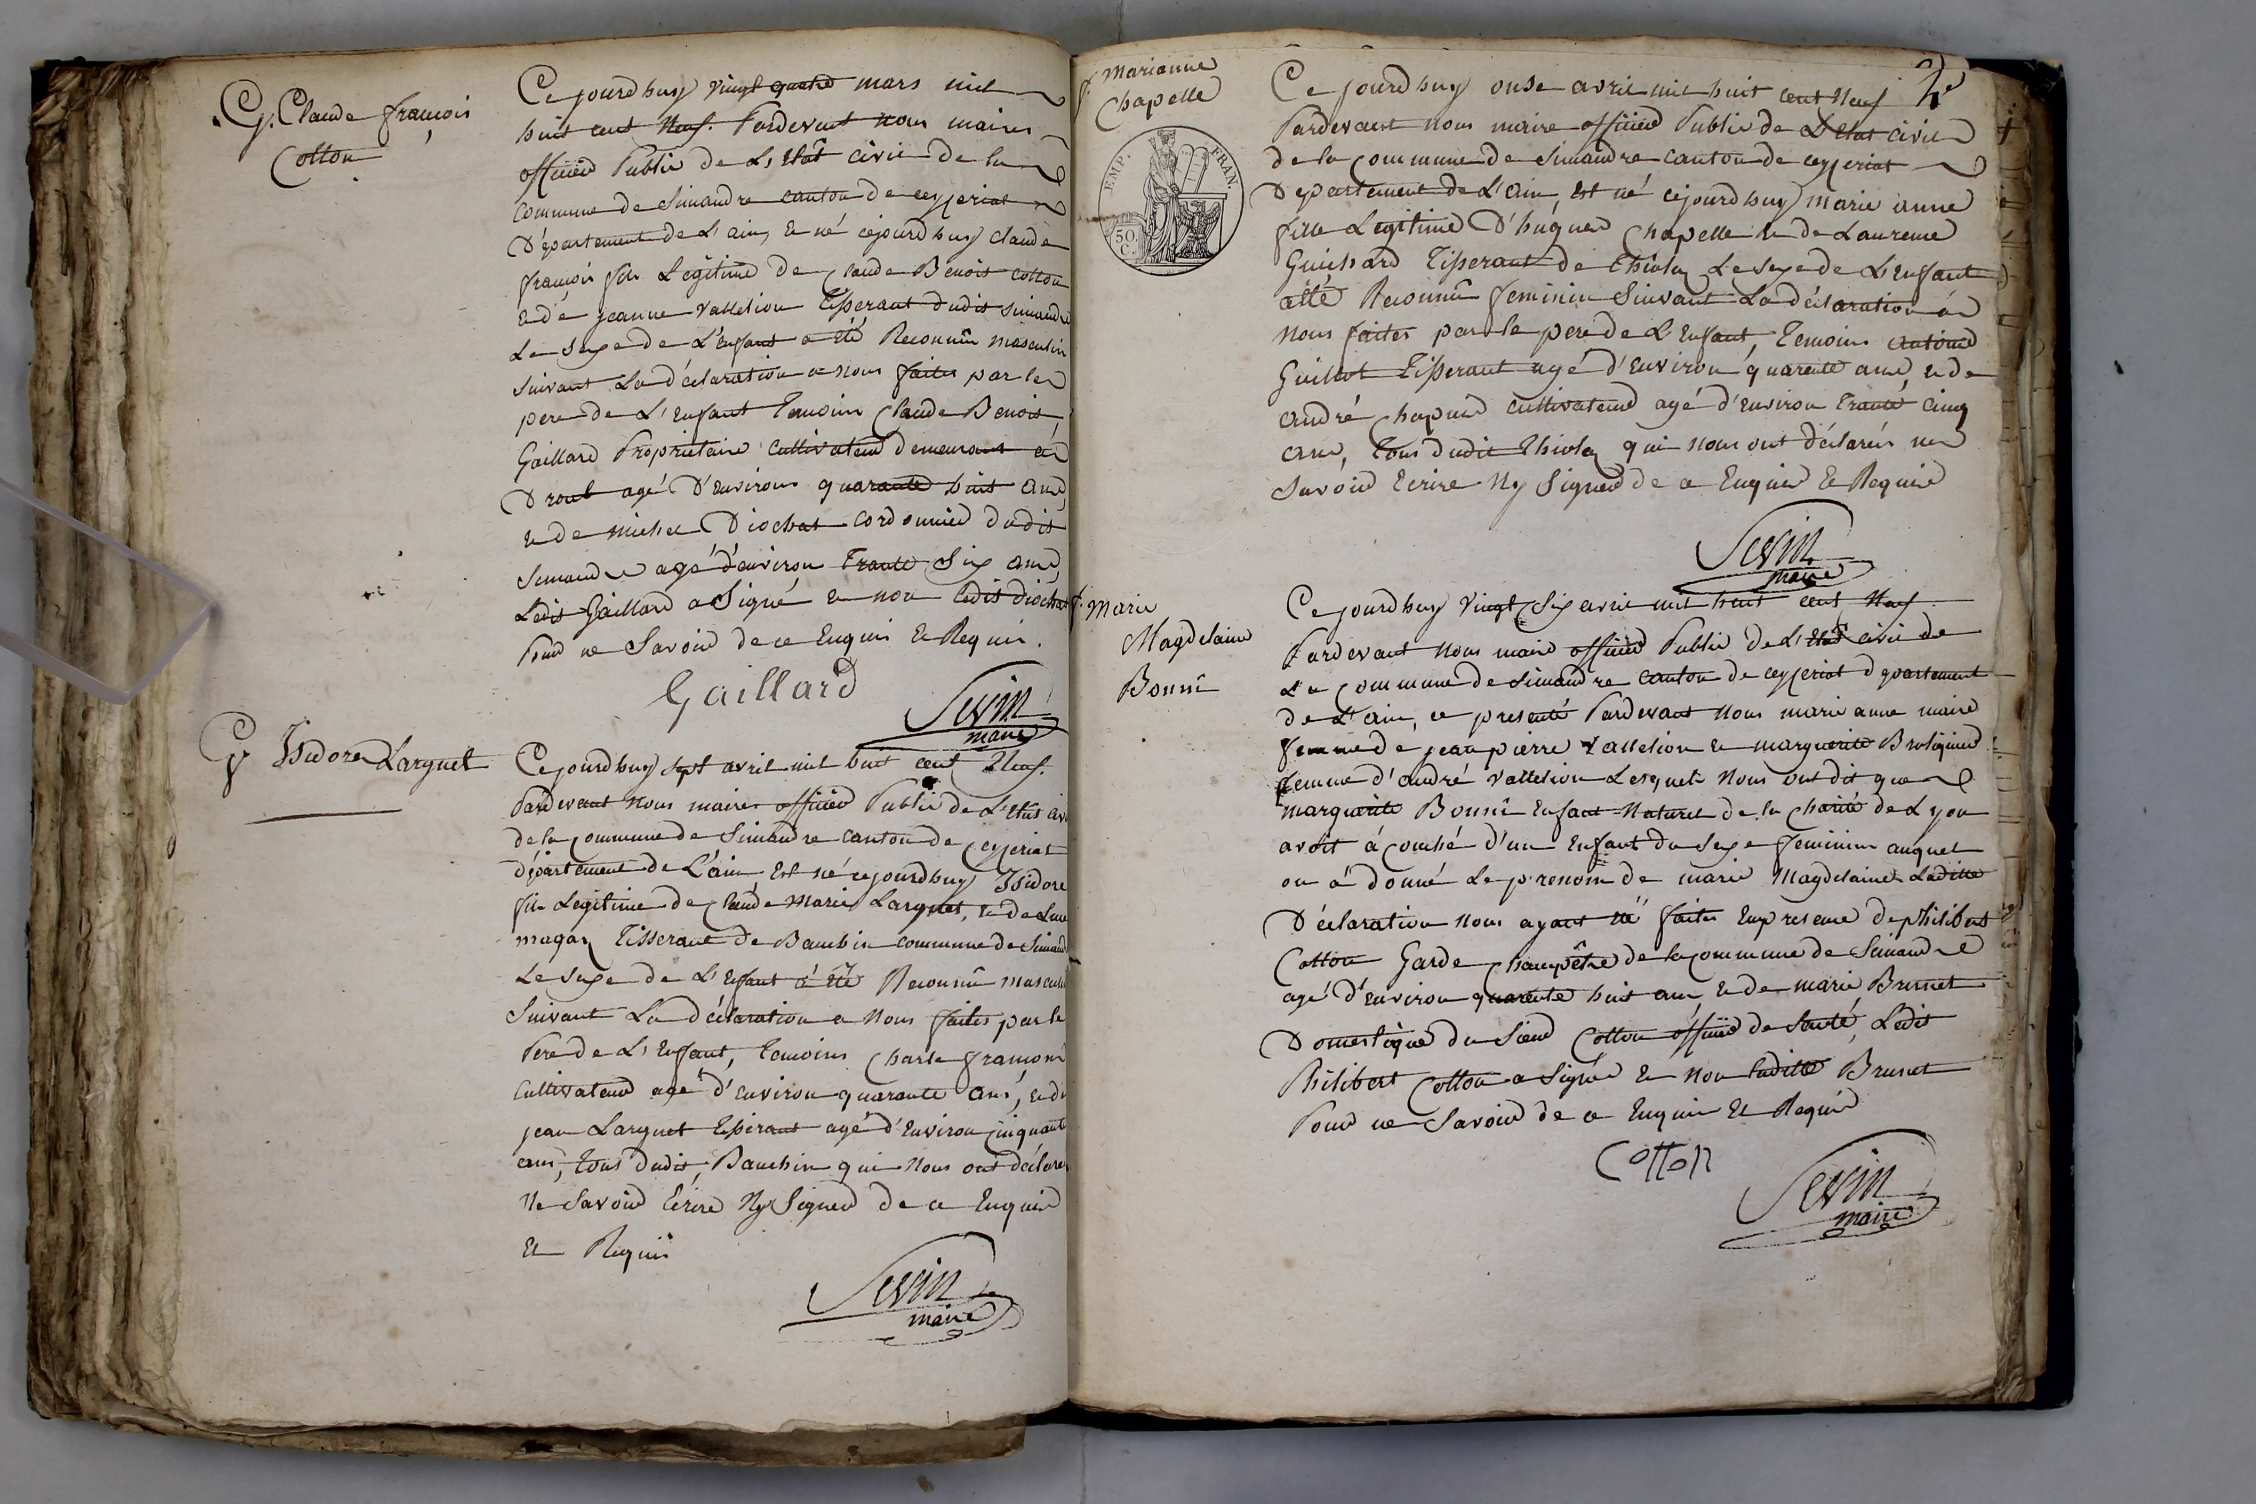 G. Claude françois
Cotton
Cejourdhuy vingt quatre mars mil
huit cent Neuf. Pardevant nous maire
officier Public de L'Etat civil de la
commune de Simandre canton de ceyzeriat
Département de L'ain, Et né cejourdhuy claude
françois fils Legitime de Claude Benoit cotton
et de jeanne vallelion Tisserant dudit simandre
Le sexe de L'enfant a eté Reconnû masculin
suivant La déclaration a nous faite par le
pere de L'enfant Temoins Claude Benoit
Gaillard Propriétaire Cultivateur demeurant a
Drout agé D'environ quarante huit ans
et de michel Diochat cordonnier dudit
Simandre agé d'environ trante Six ans
Ledit Gaillard a Signé et non Ledit diochat
Pour ne Savoir de ce Enquis Et Requis.
Gaillard
Sevin
maire
G Isidore Larguet
Cejourdhuy sept avril mil huit cent Neuf.
Pardevant nous maire officier Public de L'Etat civ
de la Commune de Simandre canton de Ceyzeriat
département de L'ain, Est né cejourdhuy Isidore
fils Legitime de Claude Marie Larguet, et de
magan Tisserant de Bauchin commune de Simand
Le sexe de L'Enfant a Eté Reconnû masculin
Suivant La déclaration a Nous faites par le
Pere de L'Enfant, Temoins Charle
Cultivateur agé d'environ quarante ans, et de
jean Larguet Tisserant agé d'Environ Cinquante
ans, tous dudit Bauchin qui Nous ont déclaré
Ne Savoir Ecrire Ny Signer de ce Enquis
Et Requis
Sevin
maire
2e
f. Marianne
Chapelle
EMP. FRAN.
50.
C.
Ce jourdhuy onse avril mil huit cent Neuf
Pardevant nous maire officier Public de L'Etat civil
de la Commune de Simandre canton de ceyzeriat
Département de L'ain, Est né cejourdhuy marie anne
fille Legitime D'hugues Chapelle et de Laurence
Guichard Tisserant de Thiole Le sexe de L'Enfant
a été Reconnû feminin Suivant La déclaration a
Nous faites par le pere de L'Enfant, Temoins antoine
Guillot Tisserant agé d'environ quarente ans, et de
andré Chapuis cultivateur agé d'environ trante cinq
ans, tous dudit Thiole qui nous ont déclarés ne
Savoir Ecrire Ny Signer de ce Enquis Et Requis
Sevin
maire
f. Marie
Magdelaine
Bonne
Ce jourdhuy vingt Six avril mil huit cent Neuf
Pardevant Nous maire officier Public de L'Etat civil de
La Commune de Simandre canton de ceyzeriat département
de L'ain, ce presenté Pardevant Nous marie anne maire
femme de jean pierre vallelion et marguerite
femme d'andré vallelion Lesquels Nous ont dit que
marguerite Bonne Enfant Naturel de la Charité de Lyon
avoit acouché d'un Enfant du Sexe feminin auquel
on a donné Le prenom de marie Magdelaine Laditte
Déclaration Nous ayant été faites Enpresence de philibert
Cotton Garde Champêtre de la Commune de Simandre
agé d'Environ quarente huit ans, et de marie Brunet
Domestique du Sieur Cotton officier de Santé, Ledit
Philibert Cotton a Signé et Non Laditte Brunet
Pour ne Savoir de ce Enquis Et Requis
Cotton
Sevin
maire